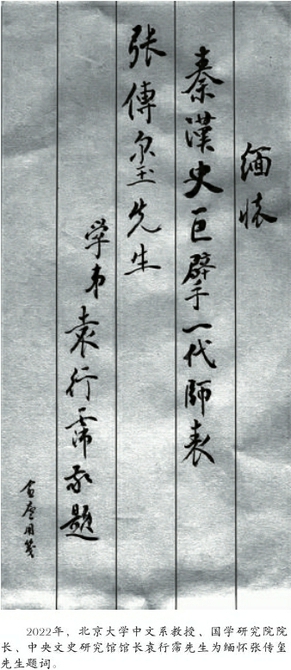 缅怀
秦漢史巨擘一代師表
张傳玺先生
学弟袁行霈敬題
愈廬用箋
2022年，北京大学中文系教授、国学研究院院
长、中央文史研究馆馆长袁行霈先生为缅怀张传玺
先生题词。